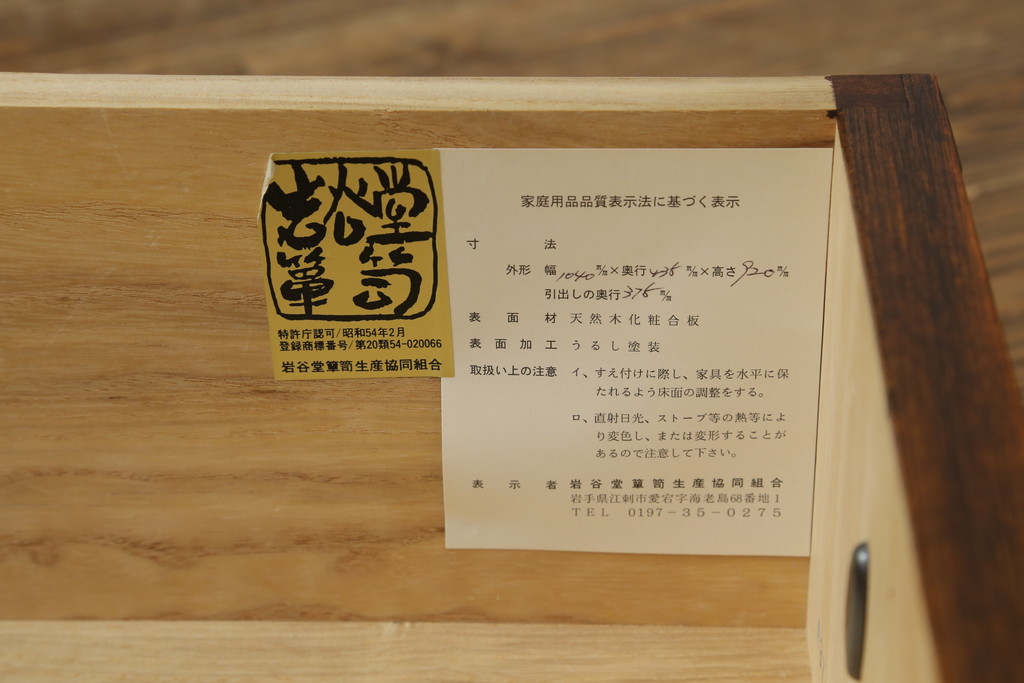 岩谷堂
簞笥
特許庁認可/昭和54年2月
登録商標番号/第20類54-020066
岩谷堂簞笥生産協同組合
家庭用品品質表示法に基づく表示
寸法
外形 幅1040m/m×奥行435m/m×高さ920m/m
引出しの奥行375m/m
表面材 天然木化粧合板
表面加工 うるし塗装
取扱い上の注意 イ、すえ付けに際し、家具を水平に保
たれるよう床面の調整をする。
ロ、直射日光、ストーブ等の熱等によ
り変色し、または変形することが
あるので注意して下さい。
表示者 岩谷堂簞笥生産協同組合
岩手県江刺市愛宕字海老島68番地1
TEL 0197-35-0275